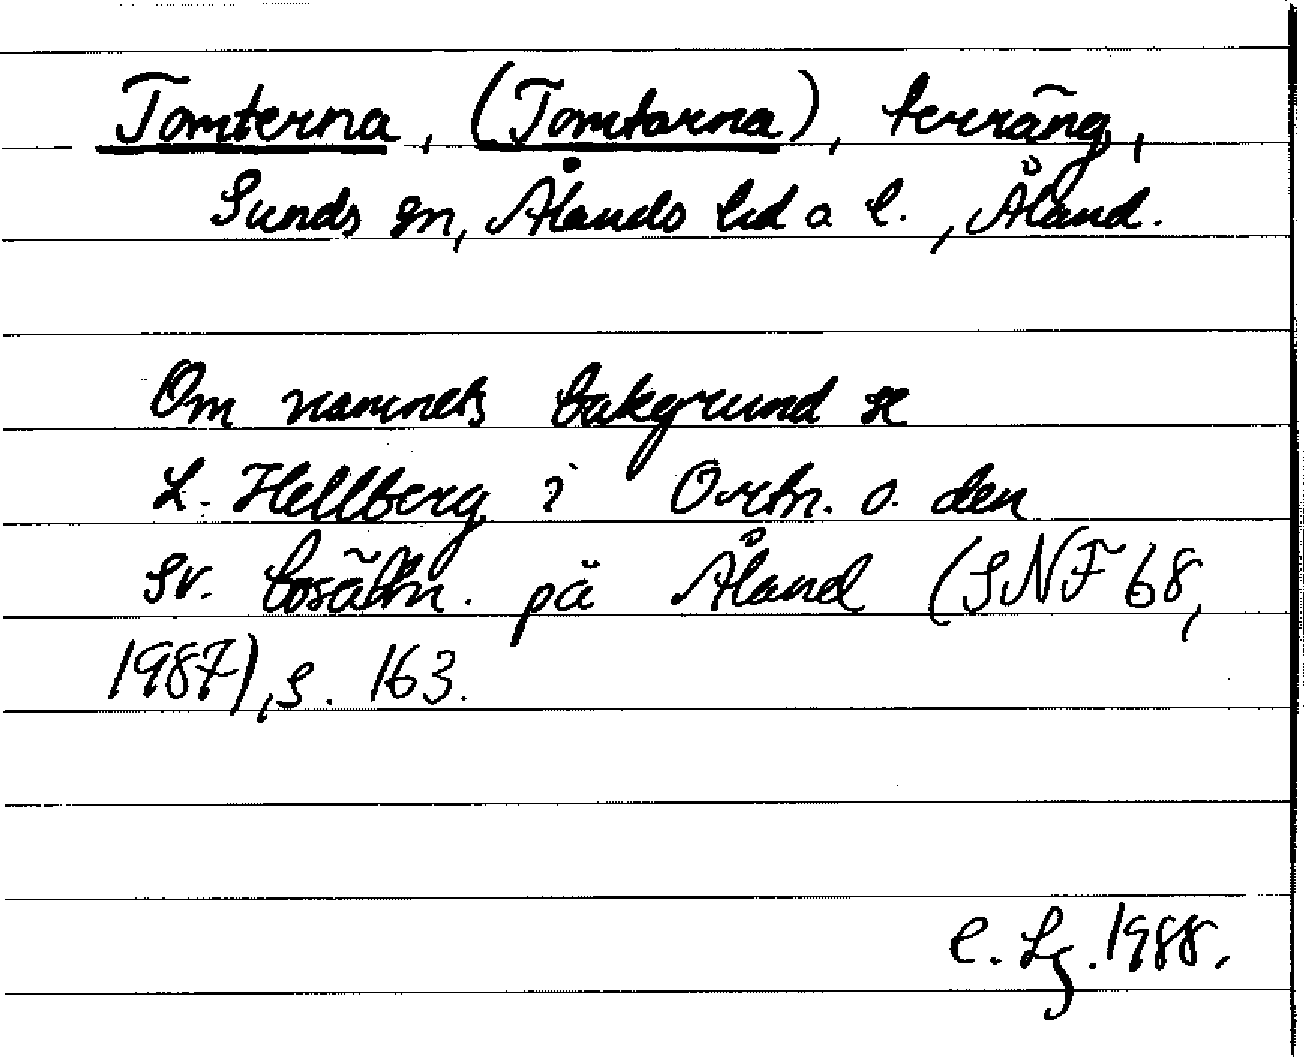 Tomterna, (Tomtarna), terräng,
Sunds sn, Ålands hd o l., Åland.
Om namnets bakgrund se
L. Hellberg i Ortn. o. den
sv. bosättn. på Åland (SNF 68,
1987), s. 163.
C. Lg. 1988.